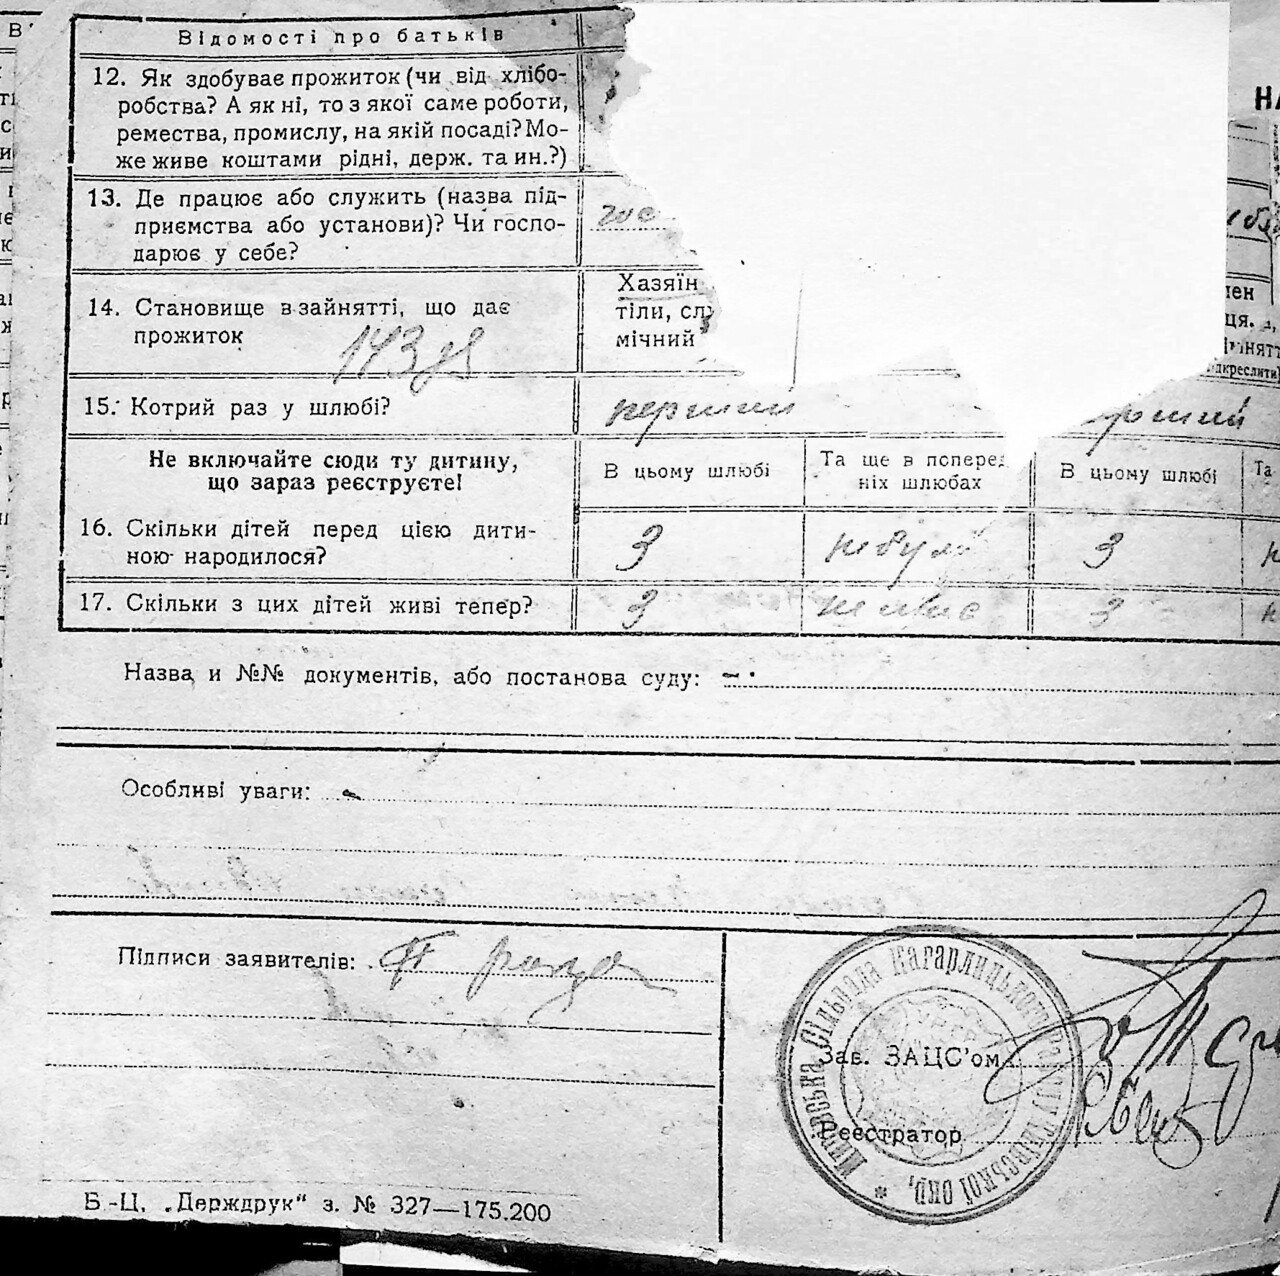 Відомості про батьків
12. Як здобуває прожиток (чи від хлібо-
робства? А як ні, то з якої саме роботи,
ремества, промислу, на якій посаді? Мо-
же живе коштами рідні, держ. та ин.?)
13. Де працює або служить (назва під-
приємства або установи)? Чи госпо-
дарює у себе?
14. Становище в зайнятті, що дає
прожиток
143
Хазяїн
тіли,
мічний
15. Котрий раз у шлюбі?
перший
Не включайте сюди ту дитину,
що зараз реєструєте!
В цьому шлюбі
Та ще в поперед
ніх шлюбах
В цьому шлюбі
Та
16. Скільки дітей перед цією дити-
ною народилося?
3
не було
3
17. Скільки з цих дітей живі тепер?
3
3
Назва и №№ документів, або постанова суду: –
Особливі уваги: –
Підписи заявителів:
Зав. ЗАЦС'ом
Реєстратор
Сільрада Кагарлицького Району Київської Окр.
Б.-Ц. „Держдрук“ з. № 327—175.200